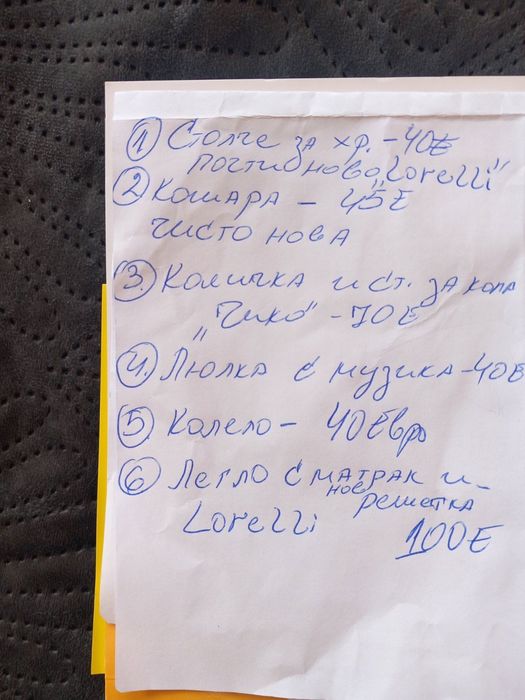 ① Столче за хр. - 40E
почти ново „Lorelli"
② Кошара – 45E
чисто нова
③. Количка и ст. за кола
„Чико" - 70E
④. Люлка с музика - 40E
⑤ Колело – 40Евро
⑥ Легло с матрак и
нов решетка
Lorelli 100E